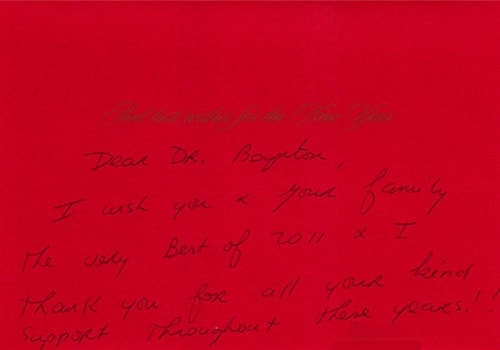 And best wishes for the New Year
Dear DR. Boynton,
I wish you & your family
The very Best of 2011 & I
Thank you for all your kind
support Throughout these years!!